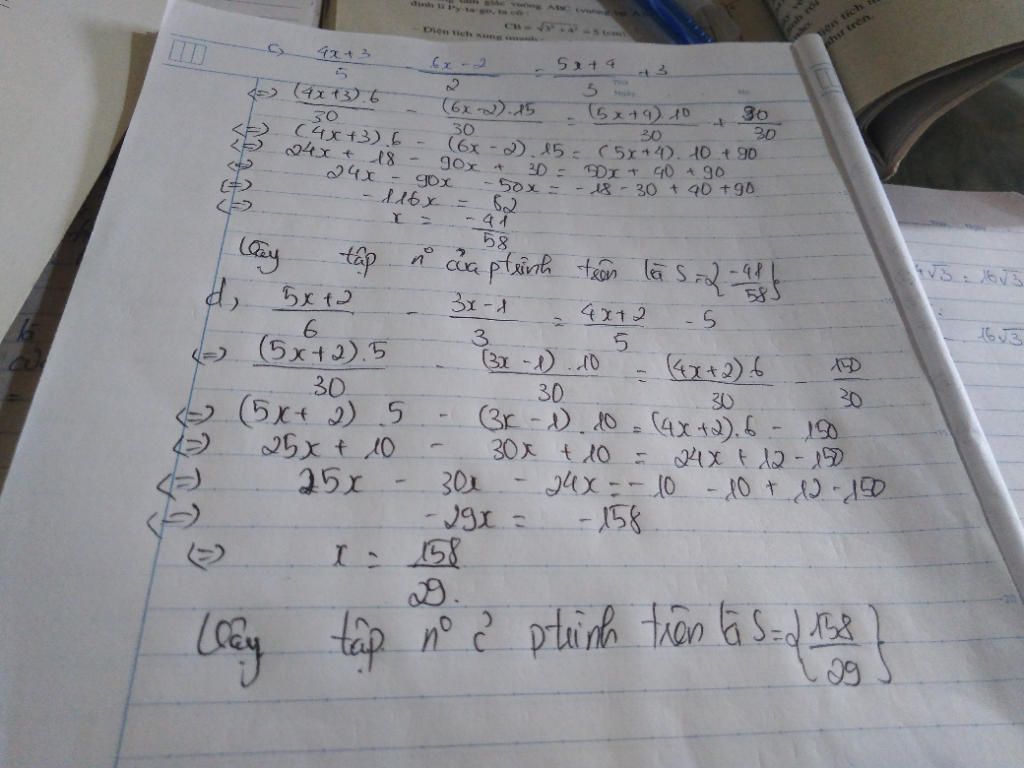 định lí Py-ta-go, ta có :
CB = √3² + 4² = 5 (cm)
- Diện tích xung quanh
như trên.
c, (4x+3)/5 - (6x-2)/2 = (5x+4)/3 + 3
<=> (4x+3).6/30 - (6x-2).15/30 = (5x+4).10/30 + 90/30
<=> (4x+3).6 - (6x-2).15 = (5x+4).10 + 90
<=> 24x + 18 - 90x + 30 = 50x + 40 + 90
<=> 24x - 90x - 50x = -18 - 30 + 40 + 90
<=> -116x = 82
<=> x = -41/58
Vậy tập n° của ptrình trên là S={-41/58}
d, (5x+2)/6 - (3x-1)/3 = (4x+2)/5 - 5
<=> (5x+2).5/30 - (3x-1).10/30 = (4x+2).6/30 - 150/30
<=> (5x+2).5 - (3x-1).10 = (4x+2).6 - 150
<=> 25x + 10 - 30x + 10 = 24x + 12 - 150
<=> 25x - 30x - 24x = -10 - 10 + 12 - 150
<=> -29x = -158
<=> x = 158/29.
Vậy tập n° ả ptrình trên là S={158/29}
4√3 = 16√3
16√3